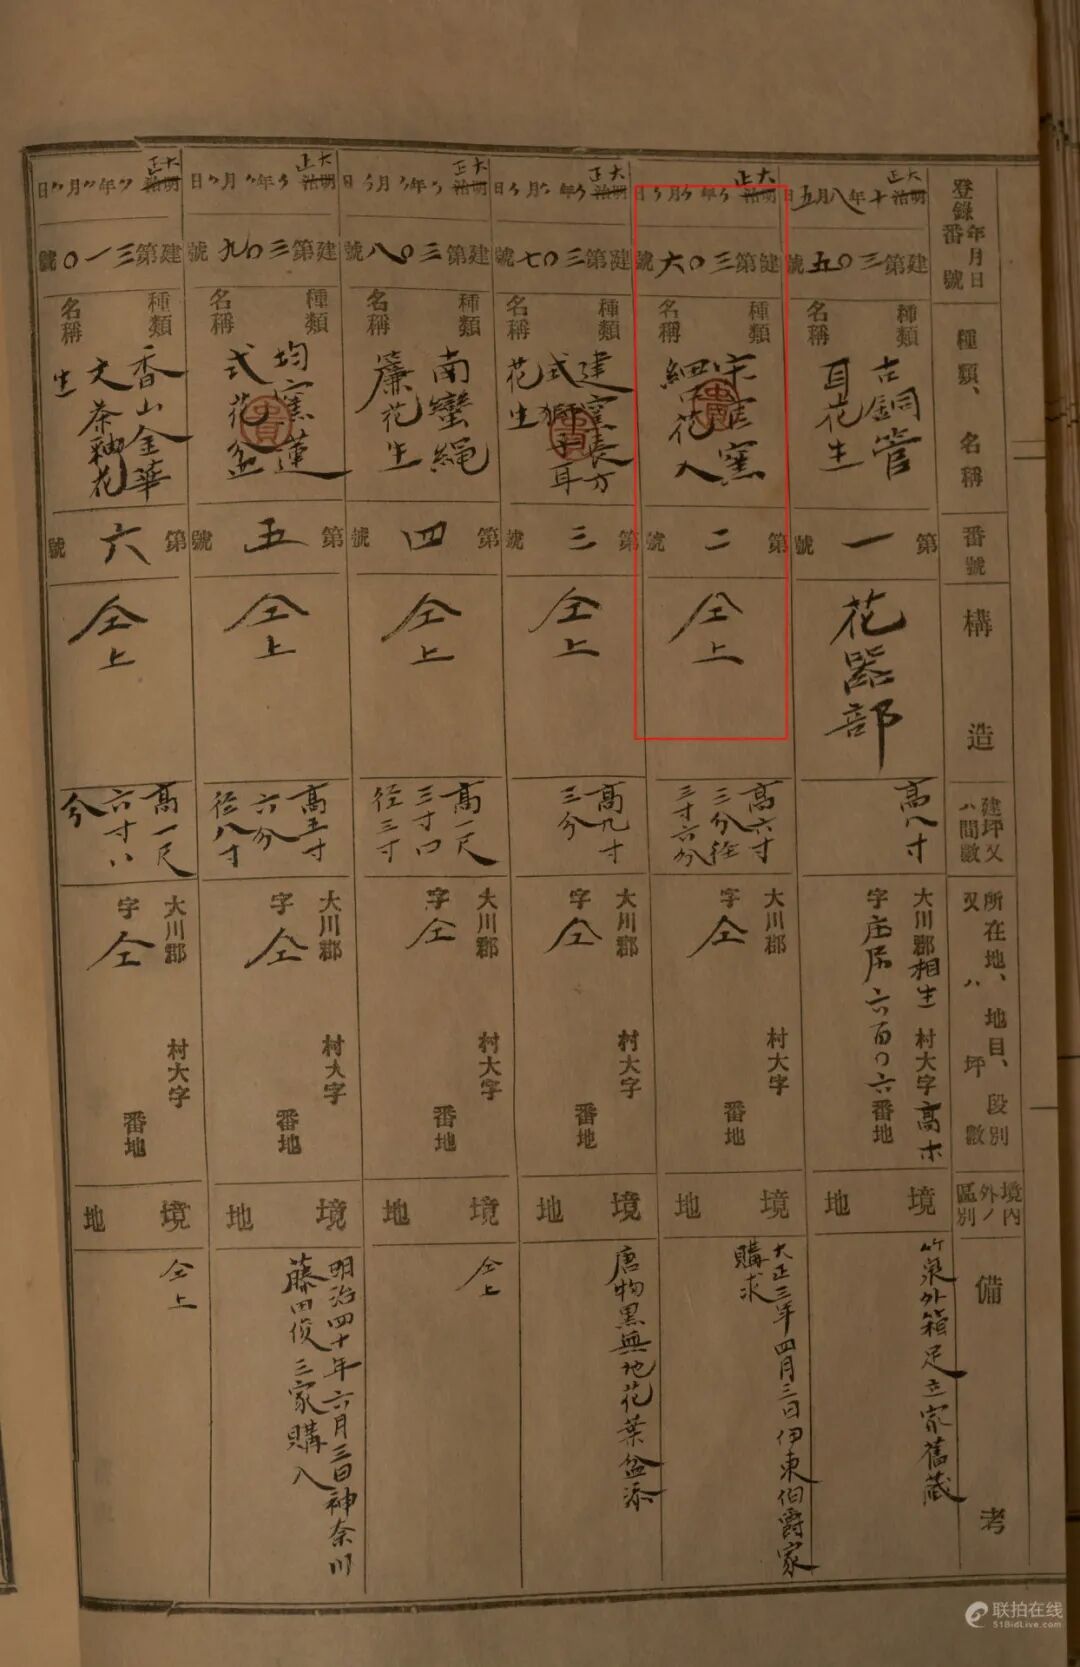 登錄年月日
番號
種類、名稱
番號
構造
建坪又
ハ間數
所在地、地目、段別
又ハ坪數
境內
外ノ
區別
備考
大正
明治十年八月五日
建第三〇五號
種類
名稱
古銅管
耳花生
第一號
花器部
高八寸
大川郡相生村大字高木
字庄屋六百〇六番地
境地
竹泉外箱足立家舊藏
大正
明治〃年〃月〃日
建第三〇六號
種類
名稱
宋官窯
細口花入
第二號
仝上
高六寸
三分徑
三寸六分
大川郡村大字
字仝番地
境地
大正三年四月三日伊東伯爵家
購求
大正
明治〃年〃月〃日
建第三〇七號
種類
名稱
建窯長方
式獅子耳
花生
第三號
仝上
高九寸
三分
大川郡村大字
字仝番地
境地
唐物黒無地花葉盆添
大正
明治〃年〃月〃日
建第三〇八號
種類
名稱
南蠻繩
簾花生
第四號
仝上
高一尺
三寸口
径三寸
大川郡村大字
字仝番地
境地
仝上
大正
明治〃年〃月〃日
建第三〇九號
種類
名稱
均窯蓮
式花盆
第五號
仝上
高五寸
六分
径八寸
大川郡村大字
字仝番地
境地
明治四十年六月三日神奈川
藤田俊三家購入
大正
明治〃年〃月〃日
建第三一〇號
種類
名稱
香山金華
文茶釉花
生
第六號
仝上
高一尺
六寸八
分
大川郡村大字
字仝番地
境地
仝上
联拍在线
51BidLive.com